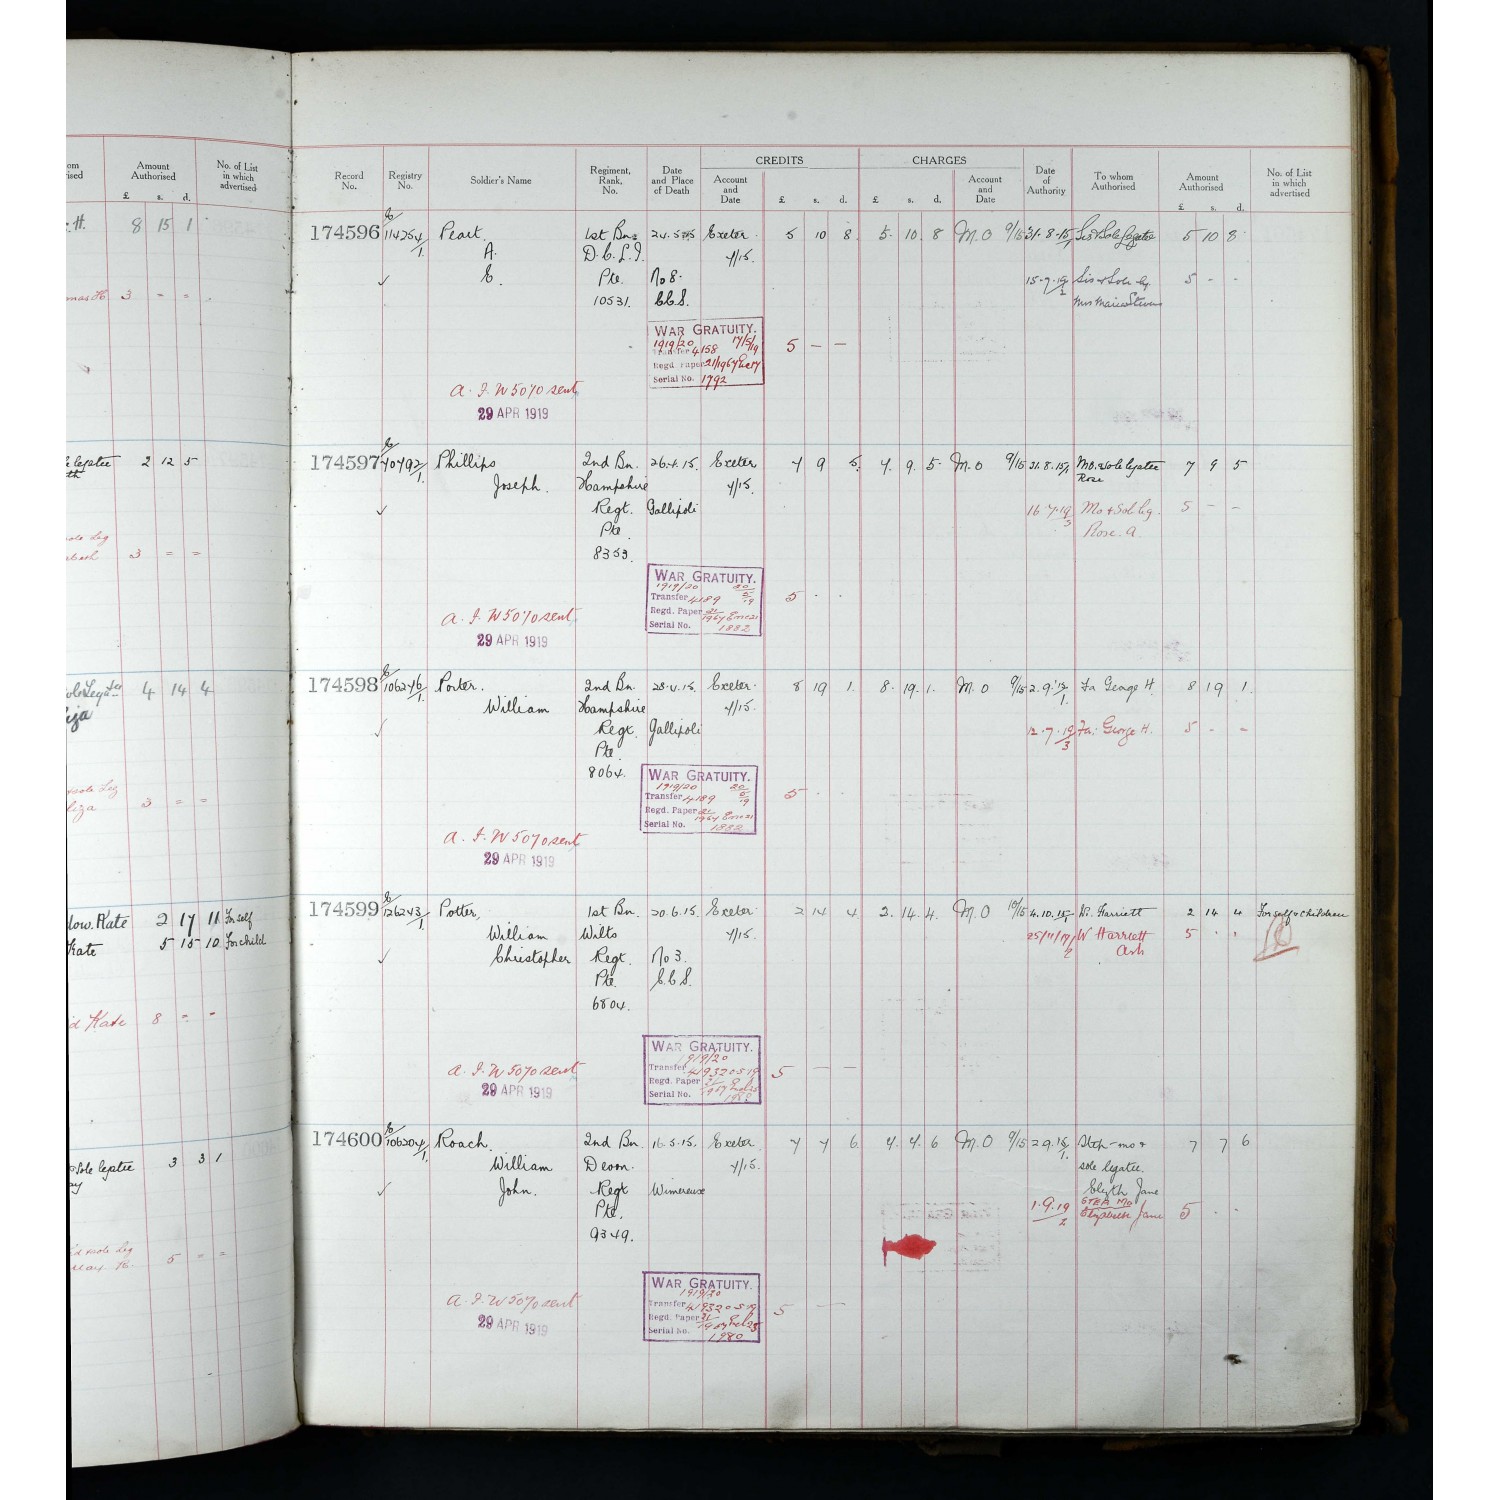 Amount
Authorised
No. of List
in which
advertised
£ s. d.
H. 8 15 1
3 - -
legatee 2 12 5
3 = =
4 14 4
3 = =
Kate 2 17 11 For self
Kate 5 15 10 For child
Kate 8 = -
Sole legatee 3 3 1
5 = =
CREDITS CHARGES
Record
No.
Registry
No.
Soldier's Name
Regiment,
Rank,
No.
Date
and Place
of Death
Account
and
Date
£ s. d.
£ s. d.
Account
and
Date
Date
of
Authority
To whom
Authorised
Amount
Authorised
£ s. d.
No. of List
in which
advertised
174596 Peart. 1st Bn. Exeter. 5 10 8. 5. 10. 8 M.O 9/15 31.8.15 Sis & Sole Legatee 5 10 8
A. D.C.L.I. 4/15.
E. Pte. No 8. Sis & Sole Leg. 5 - -
10531. C.C.S.
WAR GRATUITY.
1919/20
Transfer 4158
Regd. Paper
Serial No. 1792
5 - -
A.F.W 5070 sent
29 APR 1919
174597 Phillips 2nd Bn. 26.4.15. Exeter 7 9 5. 7. 9. 5 M.O 9/15 31.8.15 Mo. & sole legatee 7 9 5
Rose
Joseph. Hampshire 4/15.
Regt. Gallipoli 16.7.19 Mo & Sol Leg. 5 - -
Pte. Rose. A.
8353.
WAR GRATUITY.
1919/20
Transfer 4189
Regd. Paper
Serial No. 1882
5 . .
A.F.W 5070 sent
29 APR 1919
174598 Porter. 2nd Bn. 28.4.15. Exeter 8 19 1. 8. 19. 1. M.O 9/15 2.9.15 Fa George H. 8 19 1.
William Hampshire 4/15.
Regt. Gallipoli 12.7.19 Fa: George H. 5 - -
Pte.
8064.
WAR GRATUITY.
1919/20
Transfer 4189
Regd. Paper
Serial No. 1883
5 . .
A.F.W 5070 sent
29 APR 1919
174599 Potter, 1st Bn. 20.6.15. Exeter 2 14 4 2. 14. 4. M.O 10/15 4.10.15 W. Harriett 2 14 4 For self & children
William Wilts 4/15. 25/11/19 W Harriett 5 . .
Christopher Regt. No 3.
Pte. C.C.S.
6804.
WAR GRATUITY.
1919/20
Transfer
Regd. Paper
Serial No.
5 - -
A.F.W 5070 sent
29 APR 1919
174600 Roach. 2nd Bn. 16.5.15. Exeter 7 7 6 7. 7. 6 M.O 9/15 2.9.15 Step-mo & 7 7 6
William Devon. 4/15. sole legatee.
John. Regt Wimereux Jane
Pte. 1.9.19 STEP MO
Jane 5 . .
9349.
WAR GRATUITY.
1919/20
Transfer
Regd. Paper
Serial No. 1980
5 - -
A.F.W 5070 sent
29 APR 1919